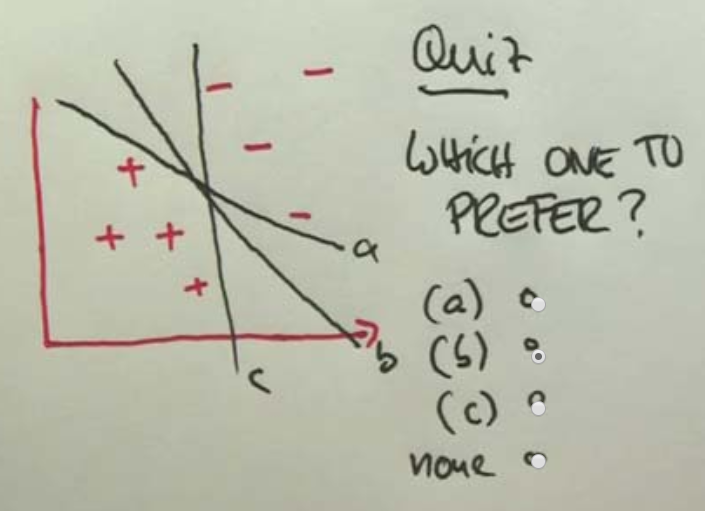 Quiz
WHICH ONE TO
PREFER?
a
b
c
(a)
(b)
(c)
none